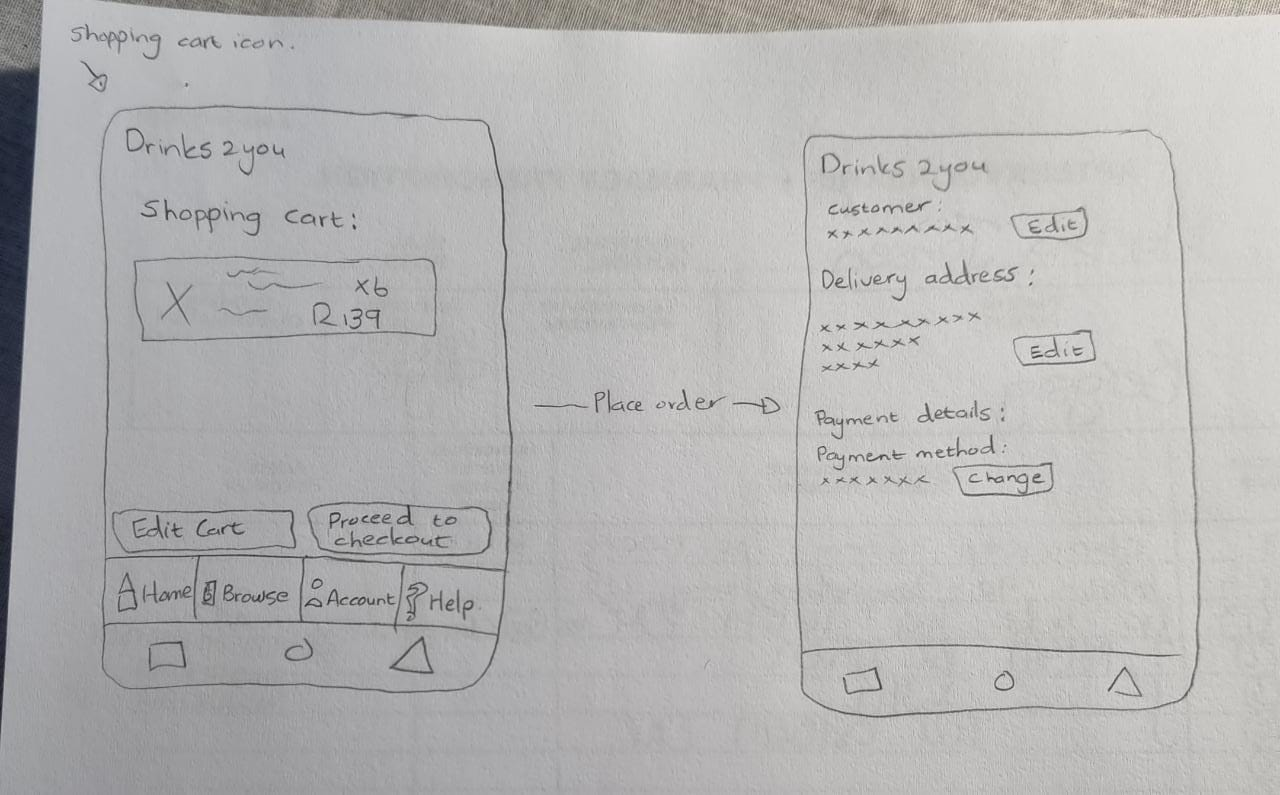 Shopping cart icon.
Drinks 2you
Shopping cart:
x6
R139
Edit Cart
Proceed to
checkout
Home
Browse
Account
Help.
Place order
Drinks 2you
customer:
xxxxxxxxx
Edit
Delivery address:
xxxxxxxxx
xxxxxx
xxxx
Edit
Payment details:
Payment method:
xxxxxxx
change